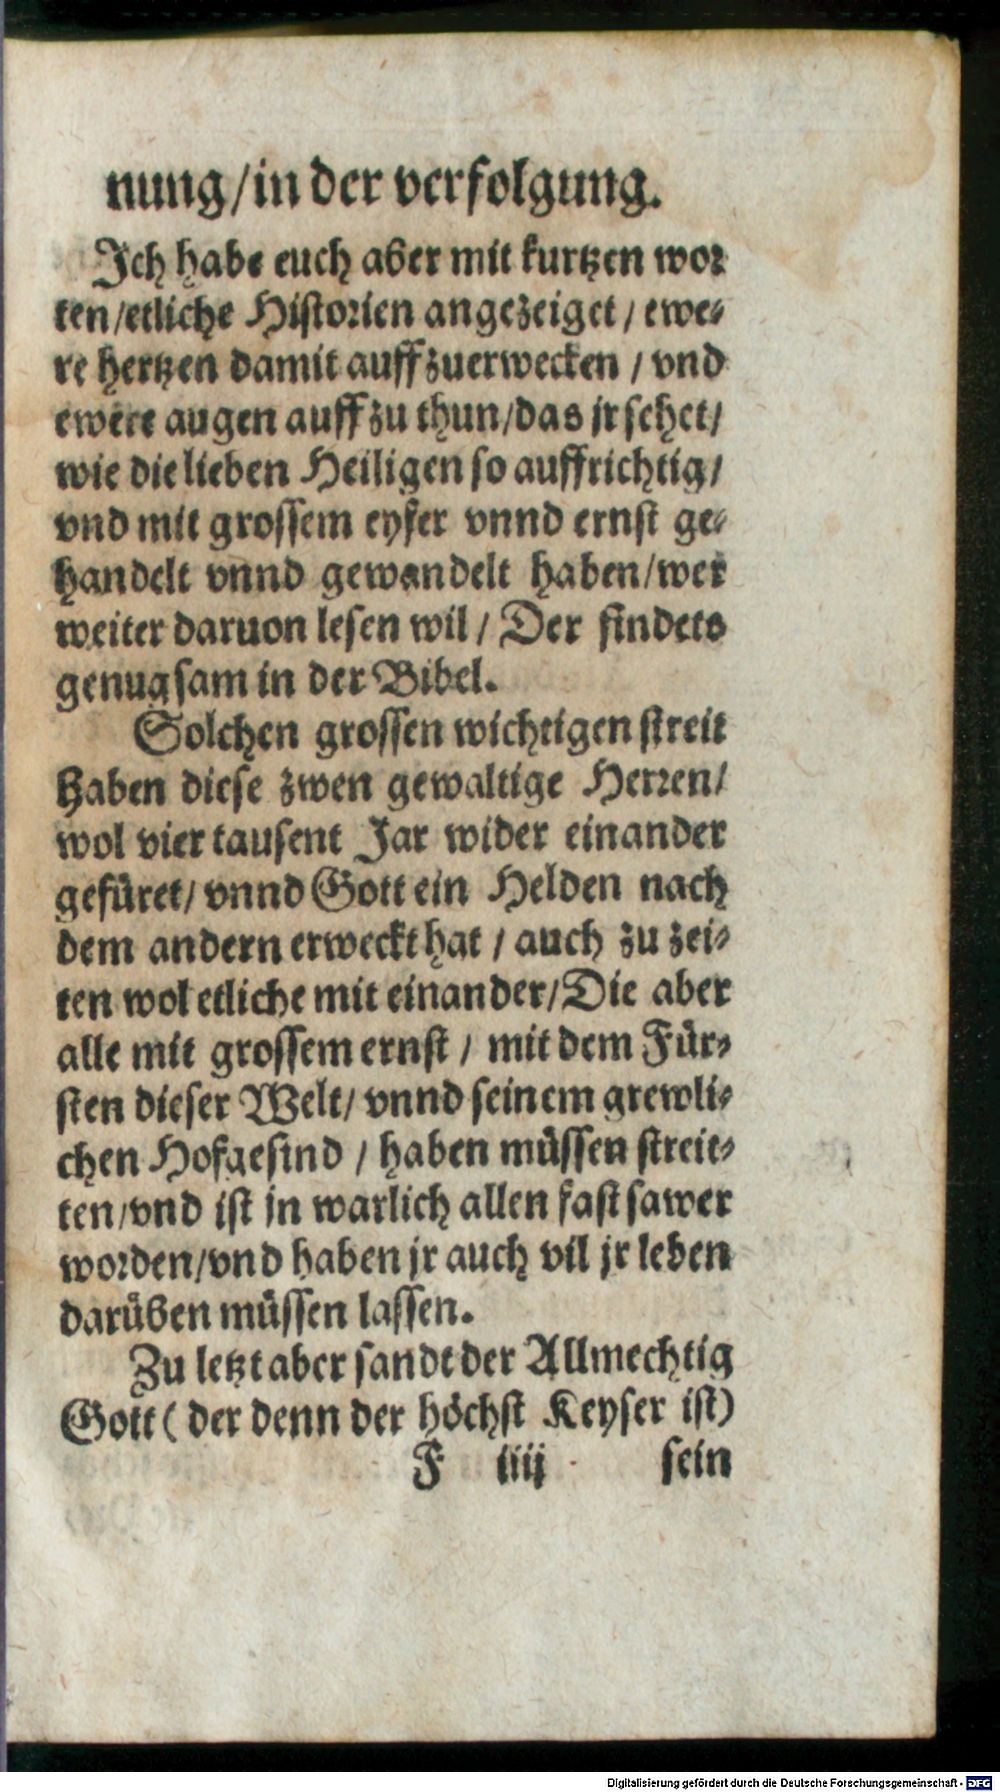 nung/in der verfolgung.
Ich habe euch aber mit kurtzen wor
ten/etliche Historien angezeiget/ ewe-
re hertzen damit auffzuerwecken / vnd
ewere augen auff zu thun/das jr sehet/
wie die lieben Heiligen so auffrichtig/
vnd mit grossem eyfer vnnd ernst ge-
handelt vnnd gewandelt haben/wer
weiter daruon lesen wil/ Der findets
genugsam in der Bibel.
Solchen grossen wichtigen streit
haben diese zwen gewaltige Herren/
wol vier tausent Jar wider einander
gefüret/ vnnd Gott ein Helden nach
dem andern erweckt hat / auch zu zei-
ten wol etliche mit einander/Die aber
alle mit grossem ernst / mit dem Für-
sten dieser Welt/ vnnd seinem grewli-
chen Hofgesind / haben müssen streit-
ten/vnd ist jn warlich allen fast sawer
worden/vnd haben jr auch vil jr leben
darüben müssen lassen.
Zu letzt aber sandt der Allmechtig
Gott ( der denn der höchst Keyser ist)
F iiij sein
Digitalisierung gefördert durch die Deutsche Forschungsgemeinschaft - DFG